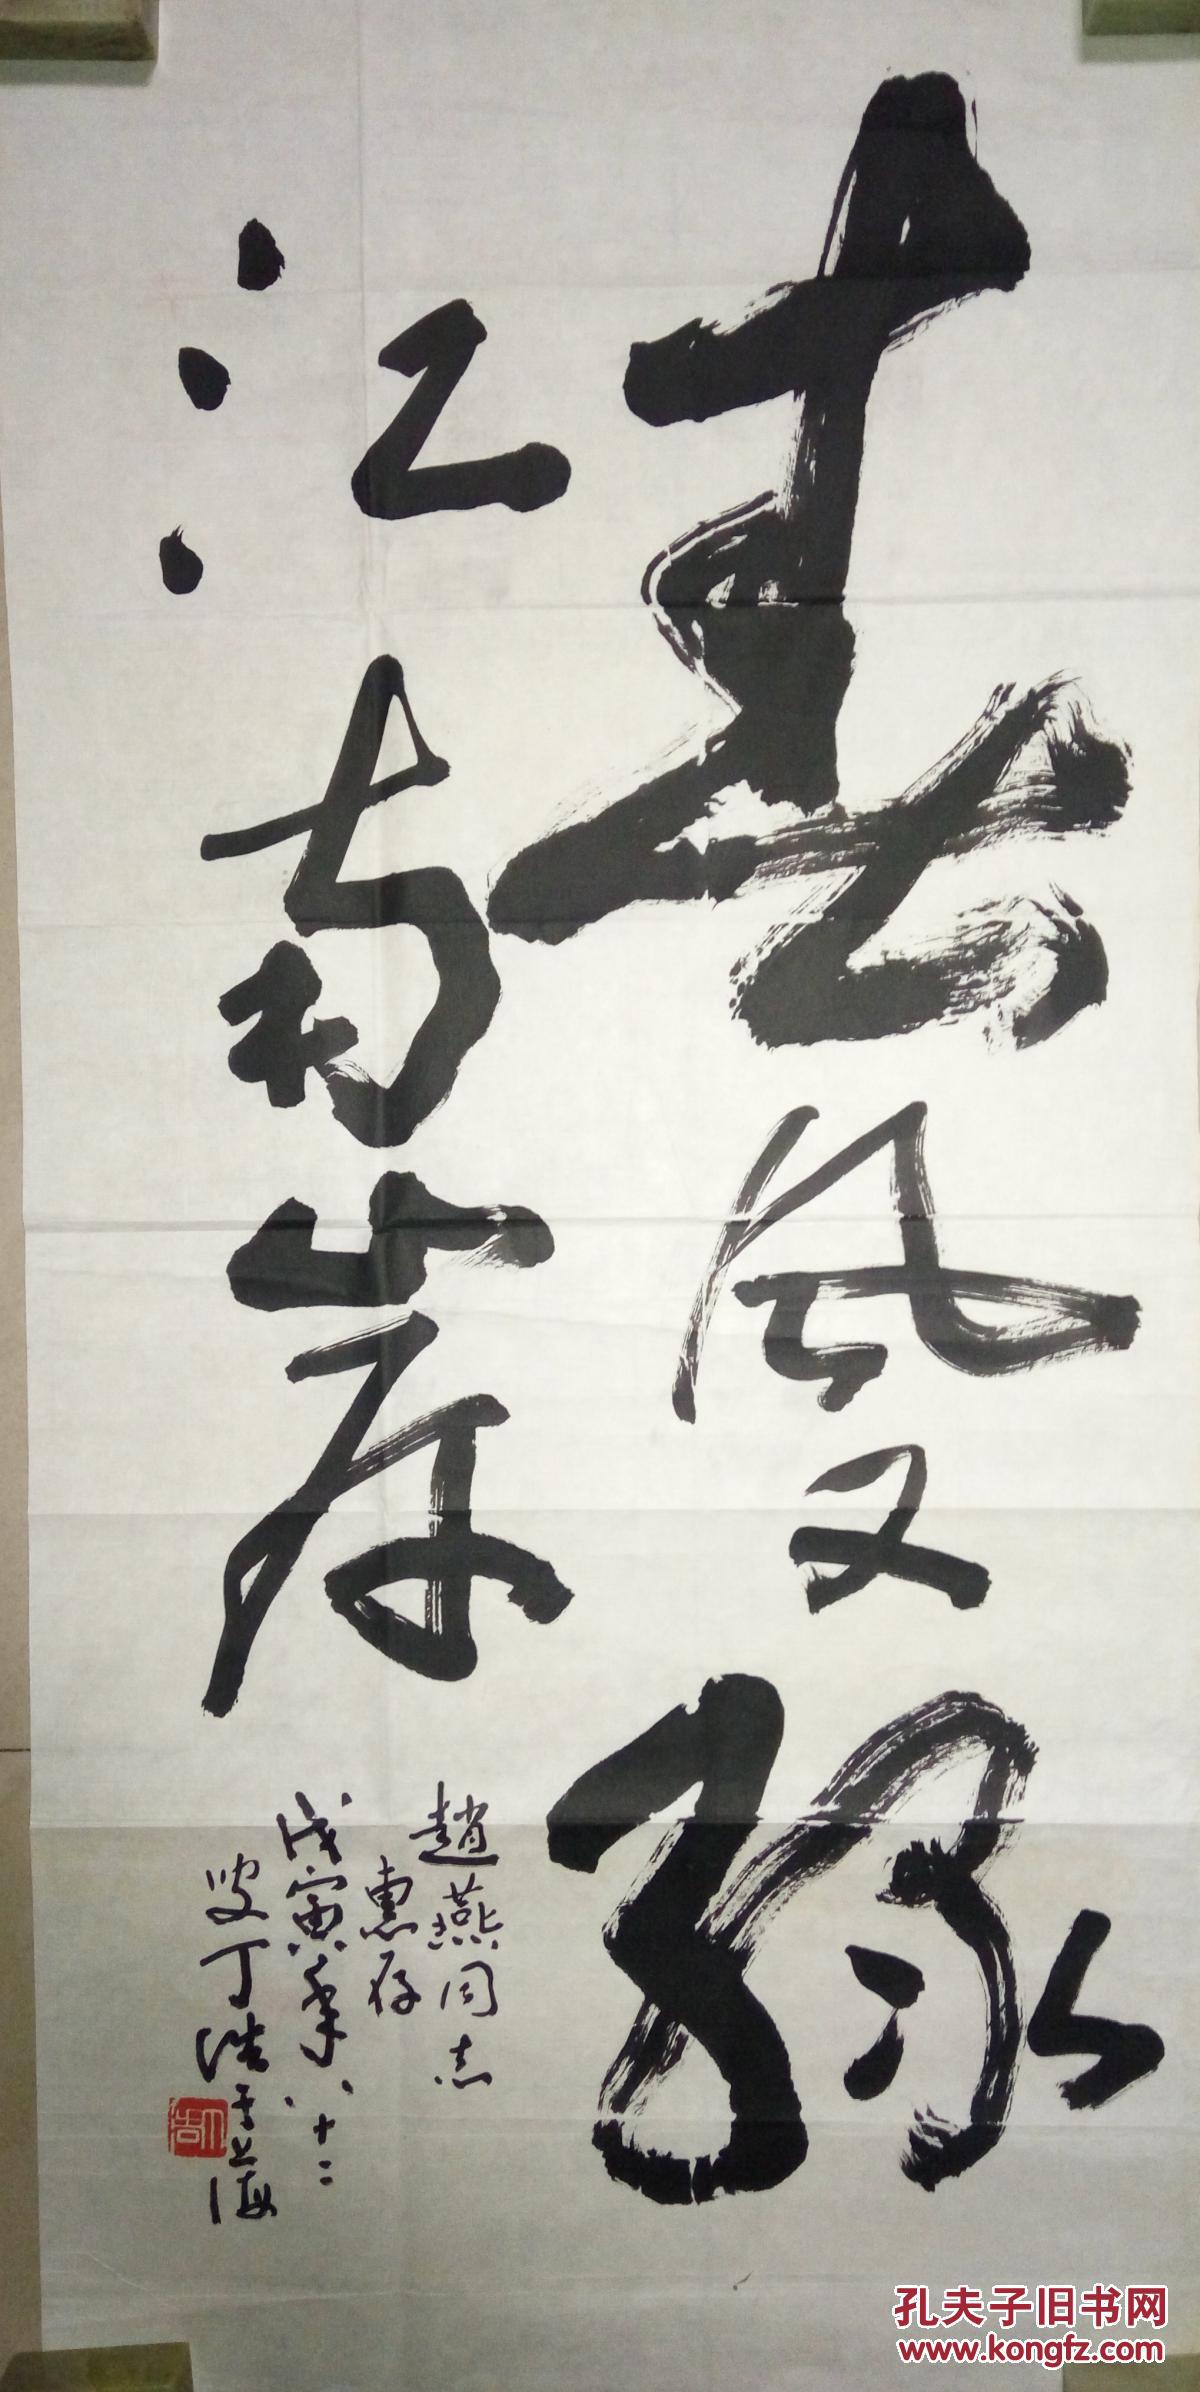 春风又绿
江南岸
趙燕同志
惠存
戊寅年八十二
叟丁浩于上海
丁浩
孔夫子旧书网
www.kongfz.com